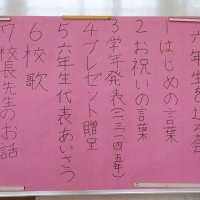 六年生を送る会
1はじめの言葉
2お祝いの言葉
3学年発表(一二四五年)
4プレゼント贈呈
5六年生代表あいさつ
6校歌
7校長先生のお話